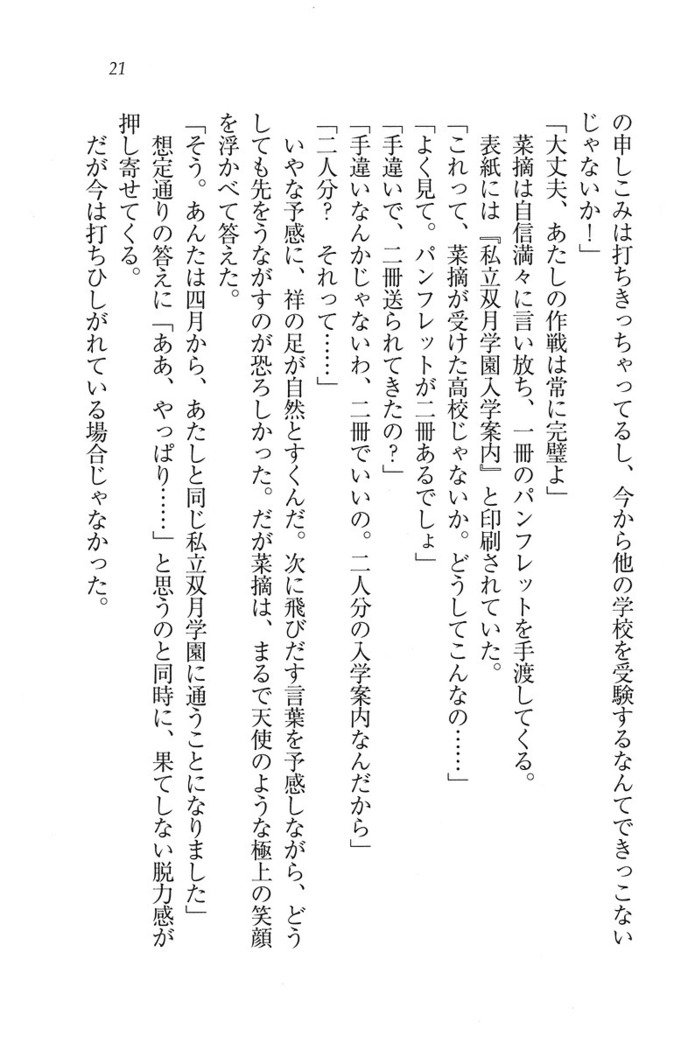 21
の申しこみは打ちきっちゃってるし、今から他の学校を受験するなんてできっこない
じゃないか！」
「大丈夫、あたしの作戦は常に完璧よ」
菜摘は自信満々に言い放ち、一冊のパンフレットを手渡してくる。
表紙には『私立双月学園入学案内』と印刷されていた。
「これって、菜摘が受けた高校じゃないか。どうしてこんなの……」
「よく見て。パンフレットが二冊あるでしょ」
「手違いで、二冊送られてきたの？」
「手違いなんかじゃないわ、二冊でいいの。二人分の入学案内なんだから」
「二人分？　それって……」
いやな予感に、祥の足が自然とすくんだ。次に飛びだす言葉を予感しながら、どう
しても先をうながすのが恐ろしかった。だが菜摘は、まるで天使のような極上の笑顔
を浮かべて答えた。
「そう。あんたは四月から、あたしと同じ私立双月学園に通うことになりました」
想定通りの答えに「ああ、やっぱり……」と思うのと同時に、果てしない脱力感が
押し寄せてくる。
だが今は打ちひしがれている場合じゃなかった。